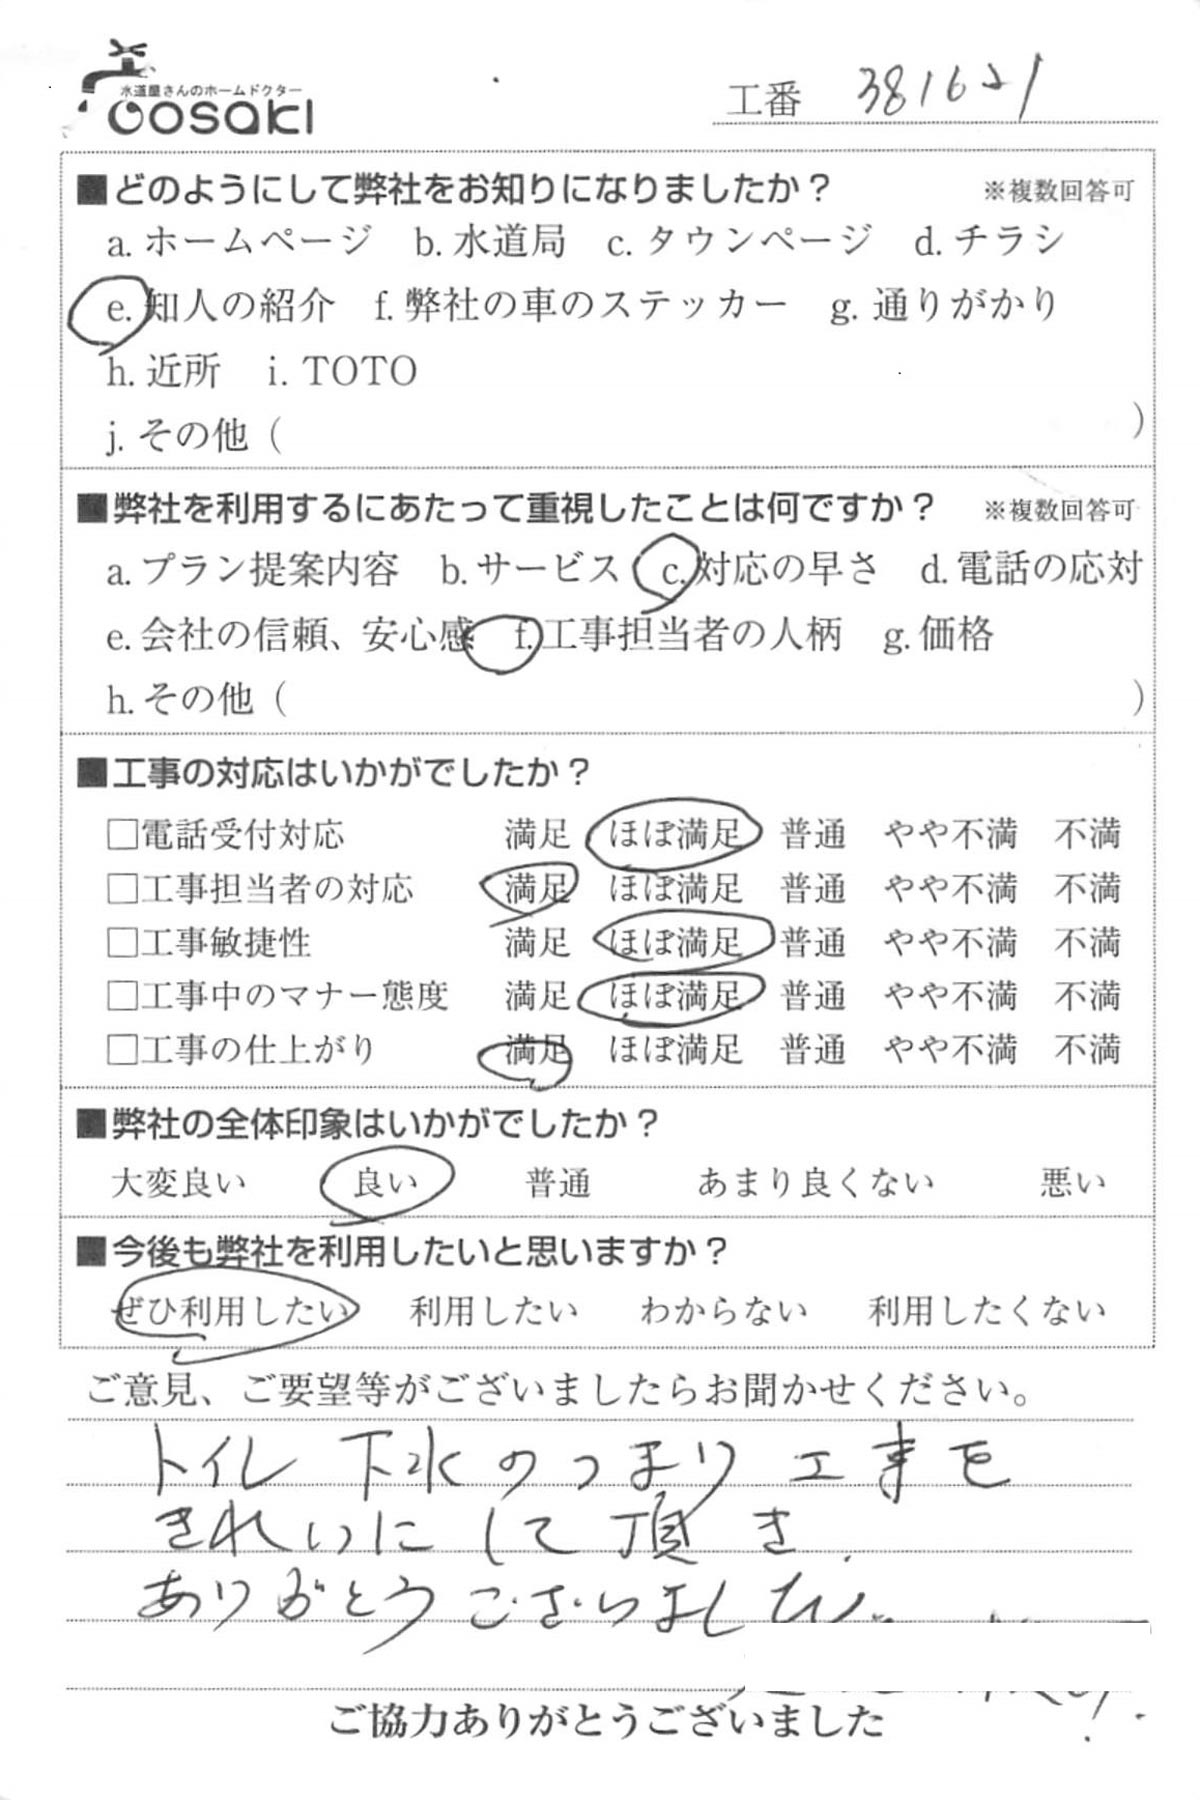 水道屋さんのホームドクター
oosaki
工番 381621
■どのようにして弊社をお知りになりましたか？ ※複数回答可
a.ホームページ b.水道局 c.タウンページ d.チラシ
e.知人の紹介 f.弊社の車のステッカー g.通りがかり
h.近所 i.TOTO
j.その他（ ）
■弊社を利用するにあたって重視したことは何ですか？ ※複数回答可
a.プラン提案内容 b.サービス c.対応の早さ d.電話の応対
e.会社の信頼、安心感 f.工事担当者の人柄 g.価格
h.その他（ ）
■工事の対応はいかがでしたか？
□電話受付対応 満足 ほぼ満足 普通 やや不満 不満
□工事担当者の対応 満足 ほぼ満足 普通 やや不満 不満
□工事敏捷性 満足 ほぼ満足 普通 やや不満 不満
□工事中のマナー態度 満足 ほぼ満足 普通 やや不満 不満
□工事の仕上がり 満足 ほぼ満足 普通 やや不満 不満
■弊社の全体印象はいかがでしたか？
大変良い 良い 普通 あまり良くない 悪い
■今後も弊社を利用したいと思いますか？
ぜひ利用したい 利用したい わからない 利用したくない
ご意見、ご要望等がございましたらお聞かせください。
トイレ 下水のつまり 工事を
きれいにして頂き、
ありがとうございました。
ご協力ありがとうございました